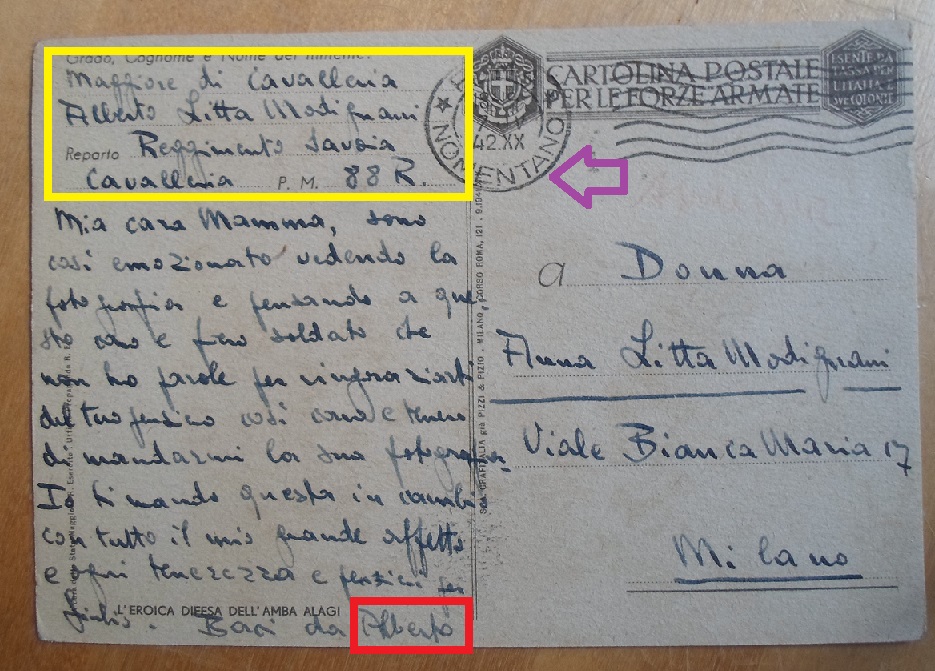 Grado, Cognome e Nome del mittente
Maggiore di Cavalleria
Alberto Litta Modignani
Reparto Reggimento Savoia
Cavalleria P. M. 88 R.
Mia cara Mamma, sono
così emozionato vedendo la
fotografia e pensando a que
sto caro e fiero soldato che
non ho parole per ringraziarti
del tuo pensiero così caro e tenero
di mandarmi la sua fotografia.
Io ti mando questa in cambio
con tutto il mio grande affetto
e ogni tenerezza e pensieri per
L'EROICA DIFESA DELL'AMBA ALAGI
Baci da Alberto
NOMENTANO
42.XX
CARTOLINA POSTALE
PER LE FORZE ARMATE
ESENTE DA
TASSA PER
L'ITALIA E
a Donna
Anna Litta Modignani
Viale Bianca Maria 17
Milano